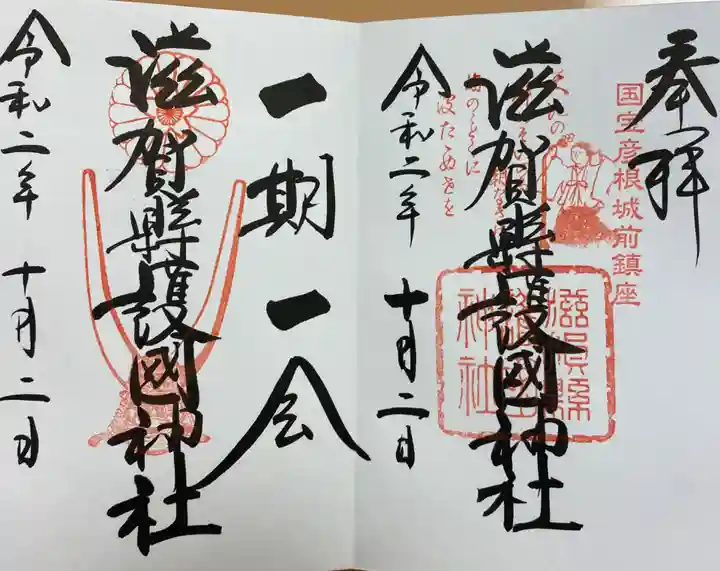 奉拝
国宝彦根城前鎮座
滋賀縣護國神社
滋賀縣
護國
神社
令和二年 十月二日
一期一会
滋賀縣護國神社
令和二年 十月二日